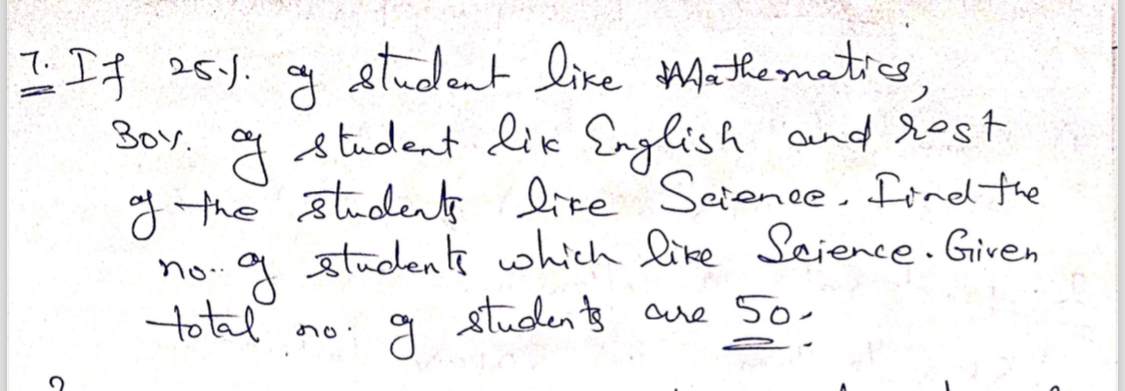 7. If 25%. of student like Mathematics,
30%. of student lik English and rest
of the students like Science. Find the
no. of students which like Science. Given
total no. of students are 50.